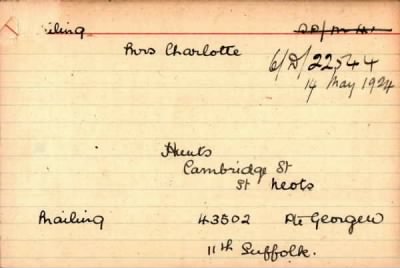 iling
Mrs Charlotte
6/D/22544
14 May 1924
Hunts
Cambridge St
St Neots
Mailing 43502 Pte George W
11th Suffolk.